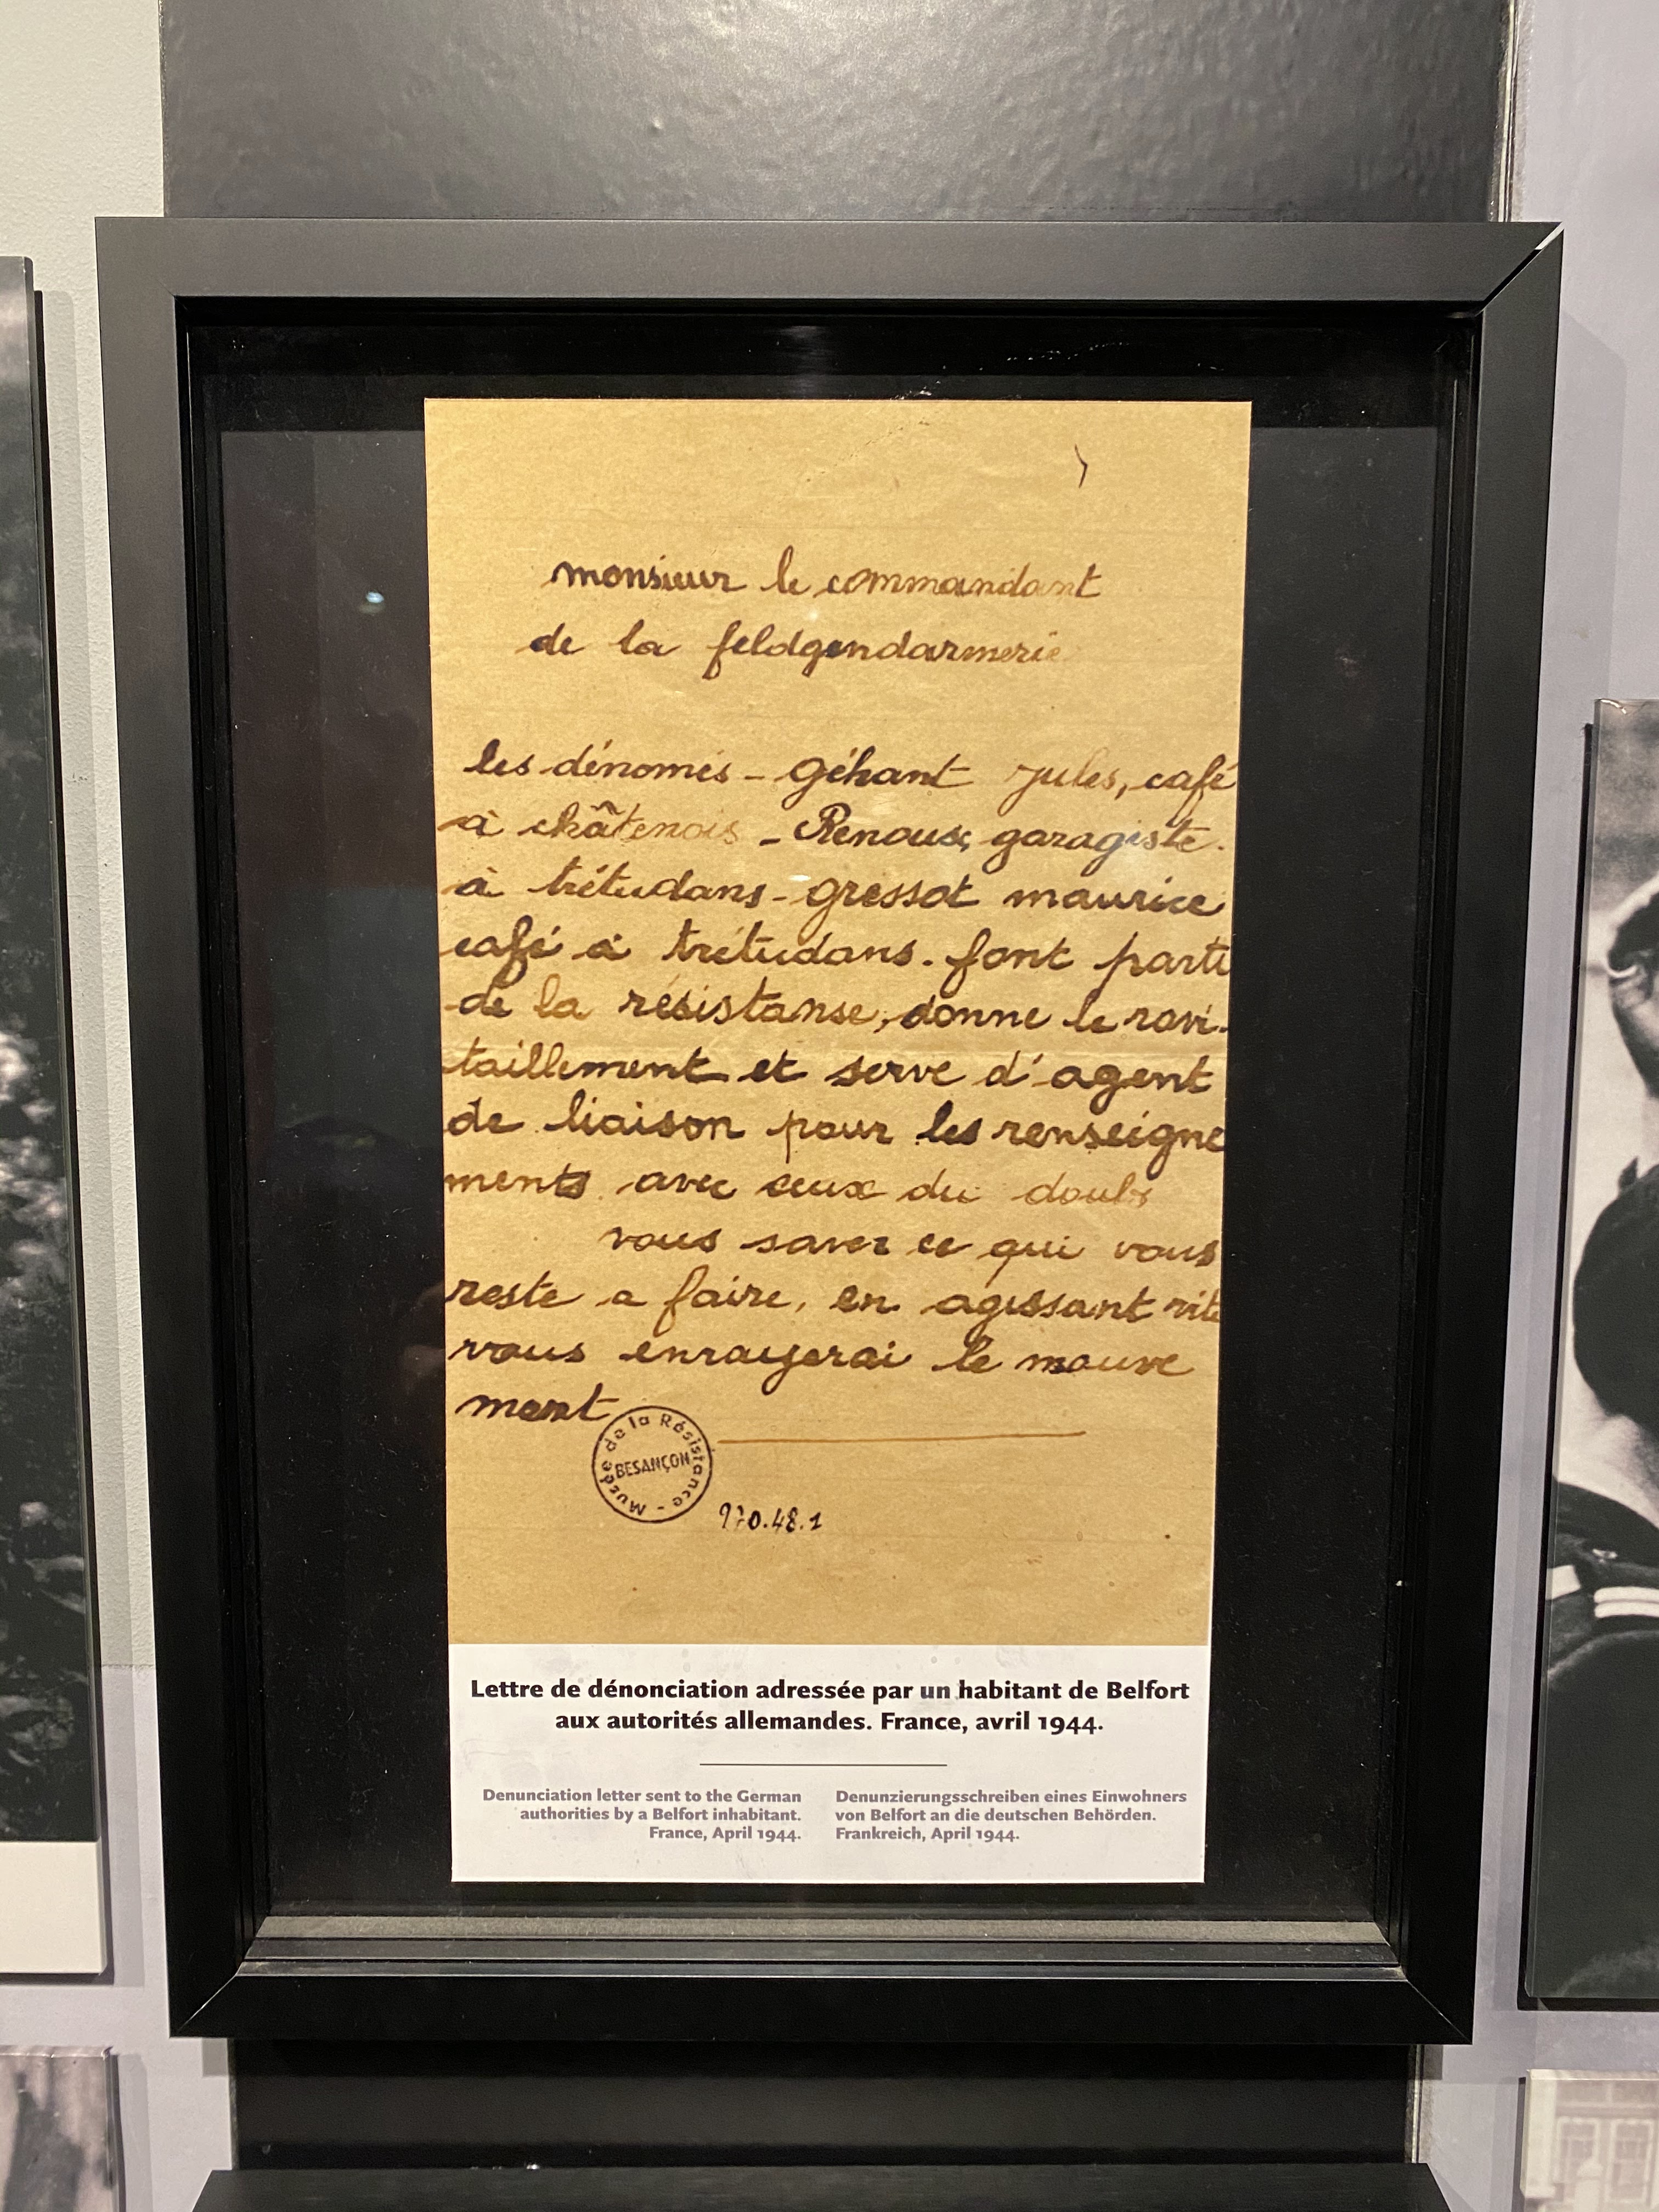 monsieur le commandant
de la feldgendarmerie
les dénomés - géhant jules, café
à châtenois - Renoux, garagiste.
à trétudans - gressot maurice
café à trétudans. font parti
de la résistanse, donne le ravi-
taillement et serve d'agent
de liaison pour les renseigne
ments avec ceux du doubs
vous saver ce qui vous
reste a faire, en agissant vite
vous enrayerai le mouve
ment
Musée de la Résistance -
BESANÇON
970.48.1
Lettre de dénonciation adressée par un habitant de Belfort
aux autorités allemandes. France, avril 1944.
Denunciation letter sent to the German
authorities by a Belfort inhabitant.
France, April 1944.
Denunzierungsschreiben eines Einwohners
von Belfort an die deutschen Behörden.
Frankreich, April 1944.